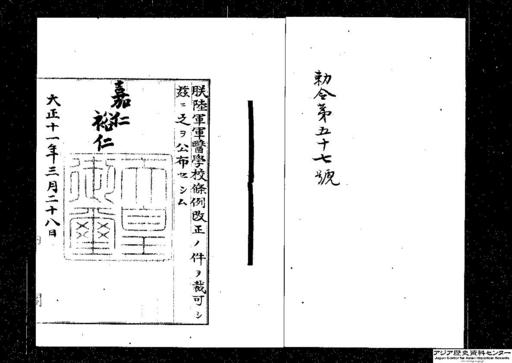 勅令第五十七號
朕陸軍軍醫學校條例改正ノ件ヲ裁可シ
玆ニ之ヲ公布セシム
嘉仁
裕仁
天皇
御璽
大正十一年三月二十八日
アジア歴史資料センター
Japan Center for Asian Historical Records